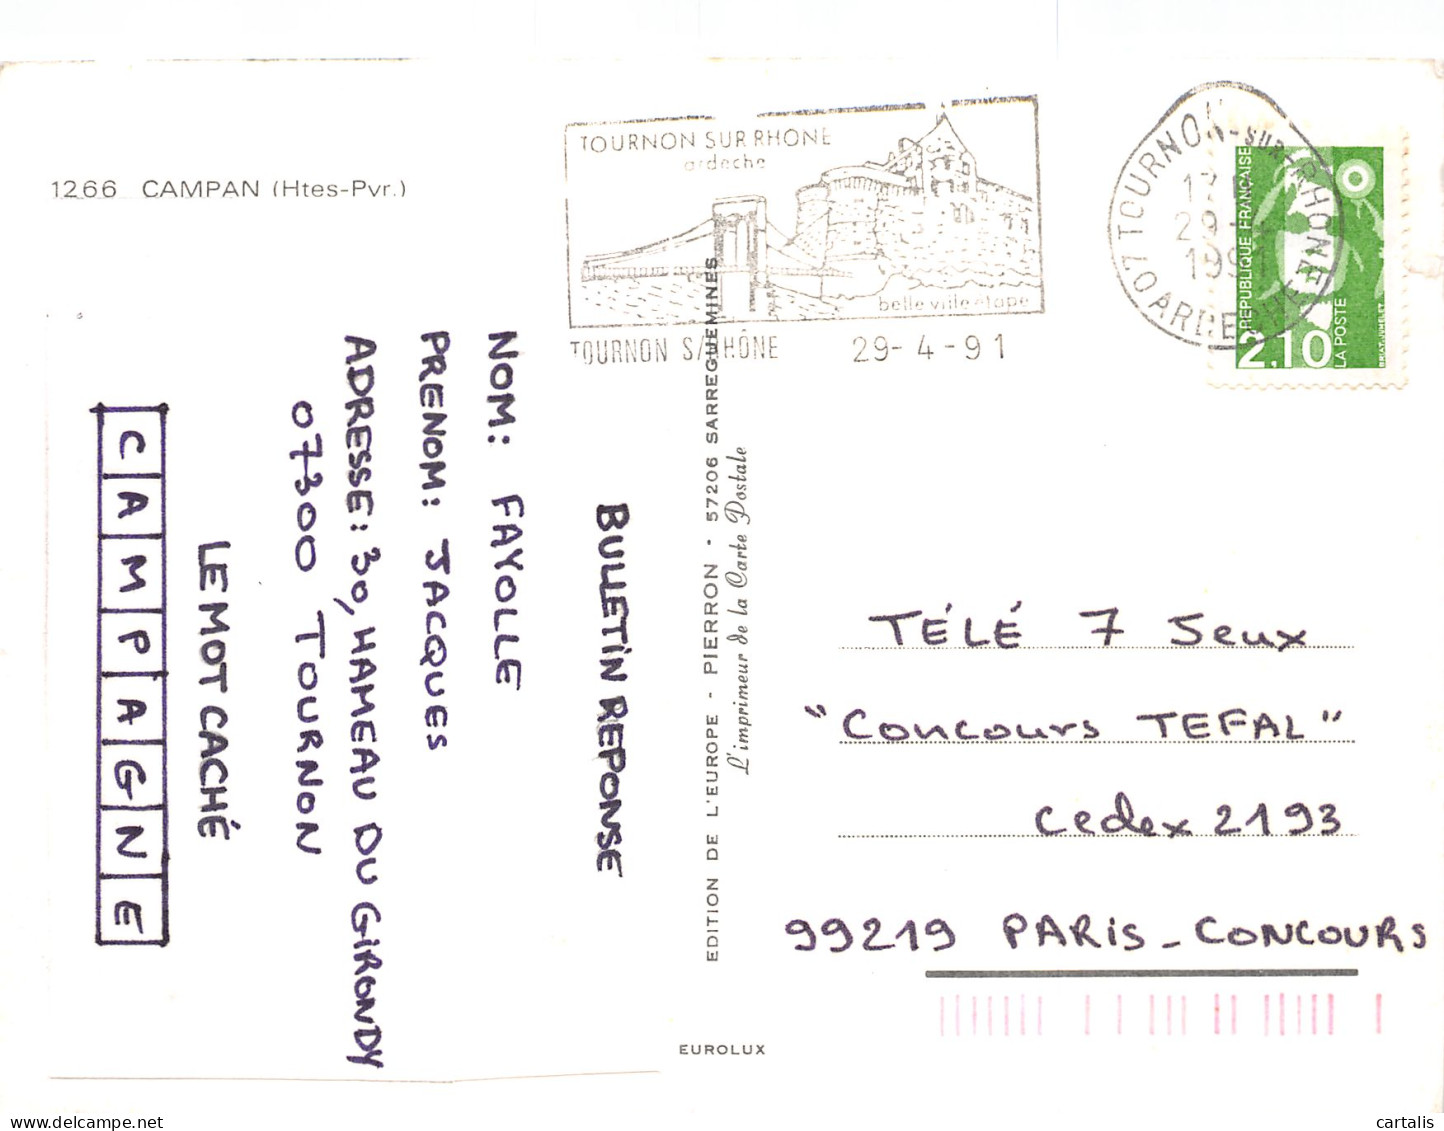 1266 CAMPAN (Htes-Pyr.)
TOURNON SUR RHONE
ardeche
belle ville étape
TOURNON S/RHÔNE 29-4-91
07 TOURNON-SUR-RHONE
17
29-
1991
ARDECHE
REPUBLIQUE FRANÇAISE
2,10
LA POSTE
BRIAT-JUMELET
BULLETIN REPONSE
NOM: FAYOLLE
PRENOM: JACQUES
ADRESSE: 30, HAMEAU DU GIRONDY
07300 TOURNON
LE MOT CACHÉ
CAMPAGNE
EDITION DE L'EUROPE - PIERRON - 57206 SARREGUEMINES
L'imprimeur de la Carte Postale
TÉLÉ 7 Jeux
"Concours TEFAL"
Cedex 2193
99219 PARIS - CONCOURS
EUROLUX
cartalis delcampe.net